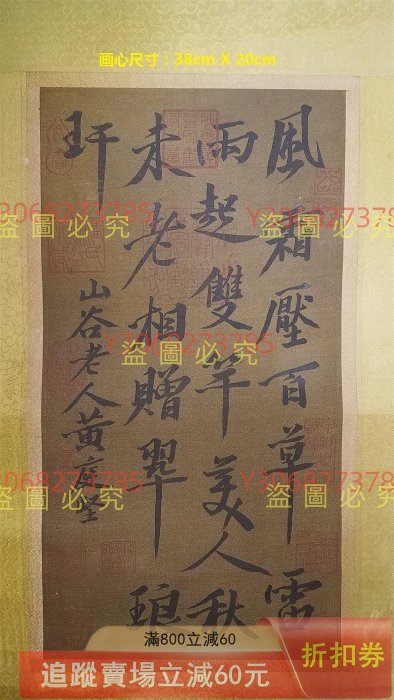 画心尺寸：38cm X 20cm
風霜壓百草雷
雨起雙竿美人秋
未老相贈翠琅
玕
山谷老人黃庭堅
3068273785 Y3068273785
盜圖必究 盜圖必究
Y3068273785
盜圖必究
3068273785 Y3068273785
盜圖必究 盜圖必究
滿800立減60
追蹤賣場立減60元
折扣券